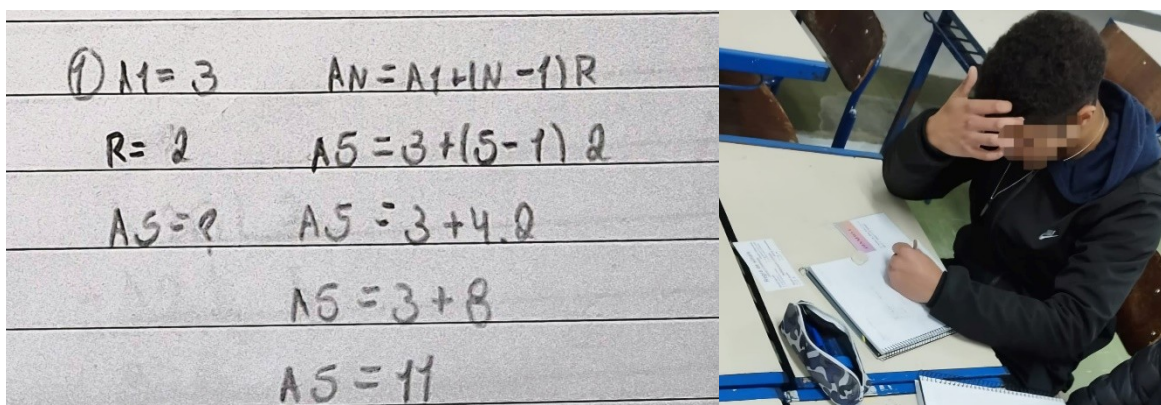 ① A1 = 3 AN = A1+(N-1)R
R = 2 A5 = 3+(5-1) 2
A5 = ? A5 = 3+4.2
A5 = 3+8
A5 = 11